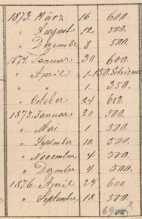 1873. März 16 600.
" August 12 500.
" Dezember 8 500.
1874. Januar 30 600.
" April 1. 130.
" " 1. 250.
" October 24 600
1875. Januar 20 300.
" Mai 1 300.
" September 10 500.
" November 4 500.
" Dezember 4 500.
1876. April 24 600
" September 18 500